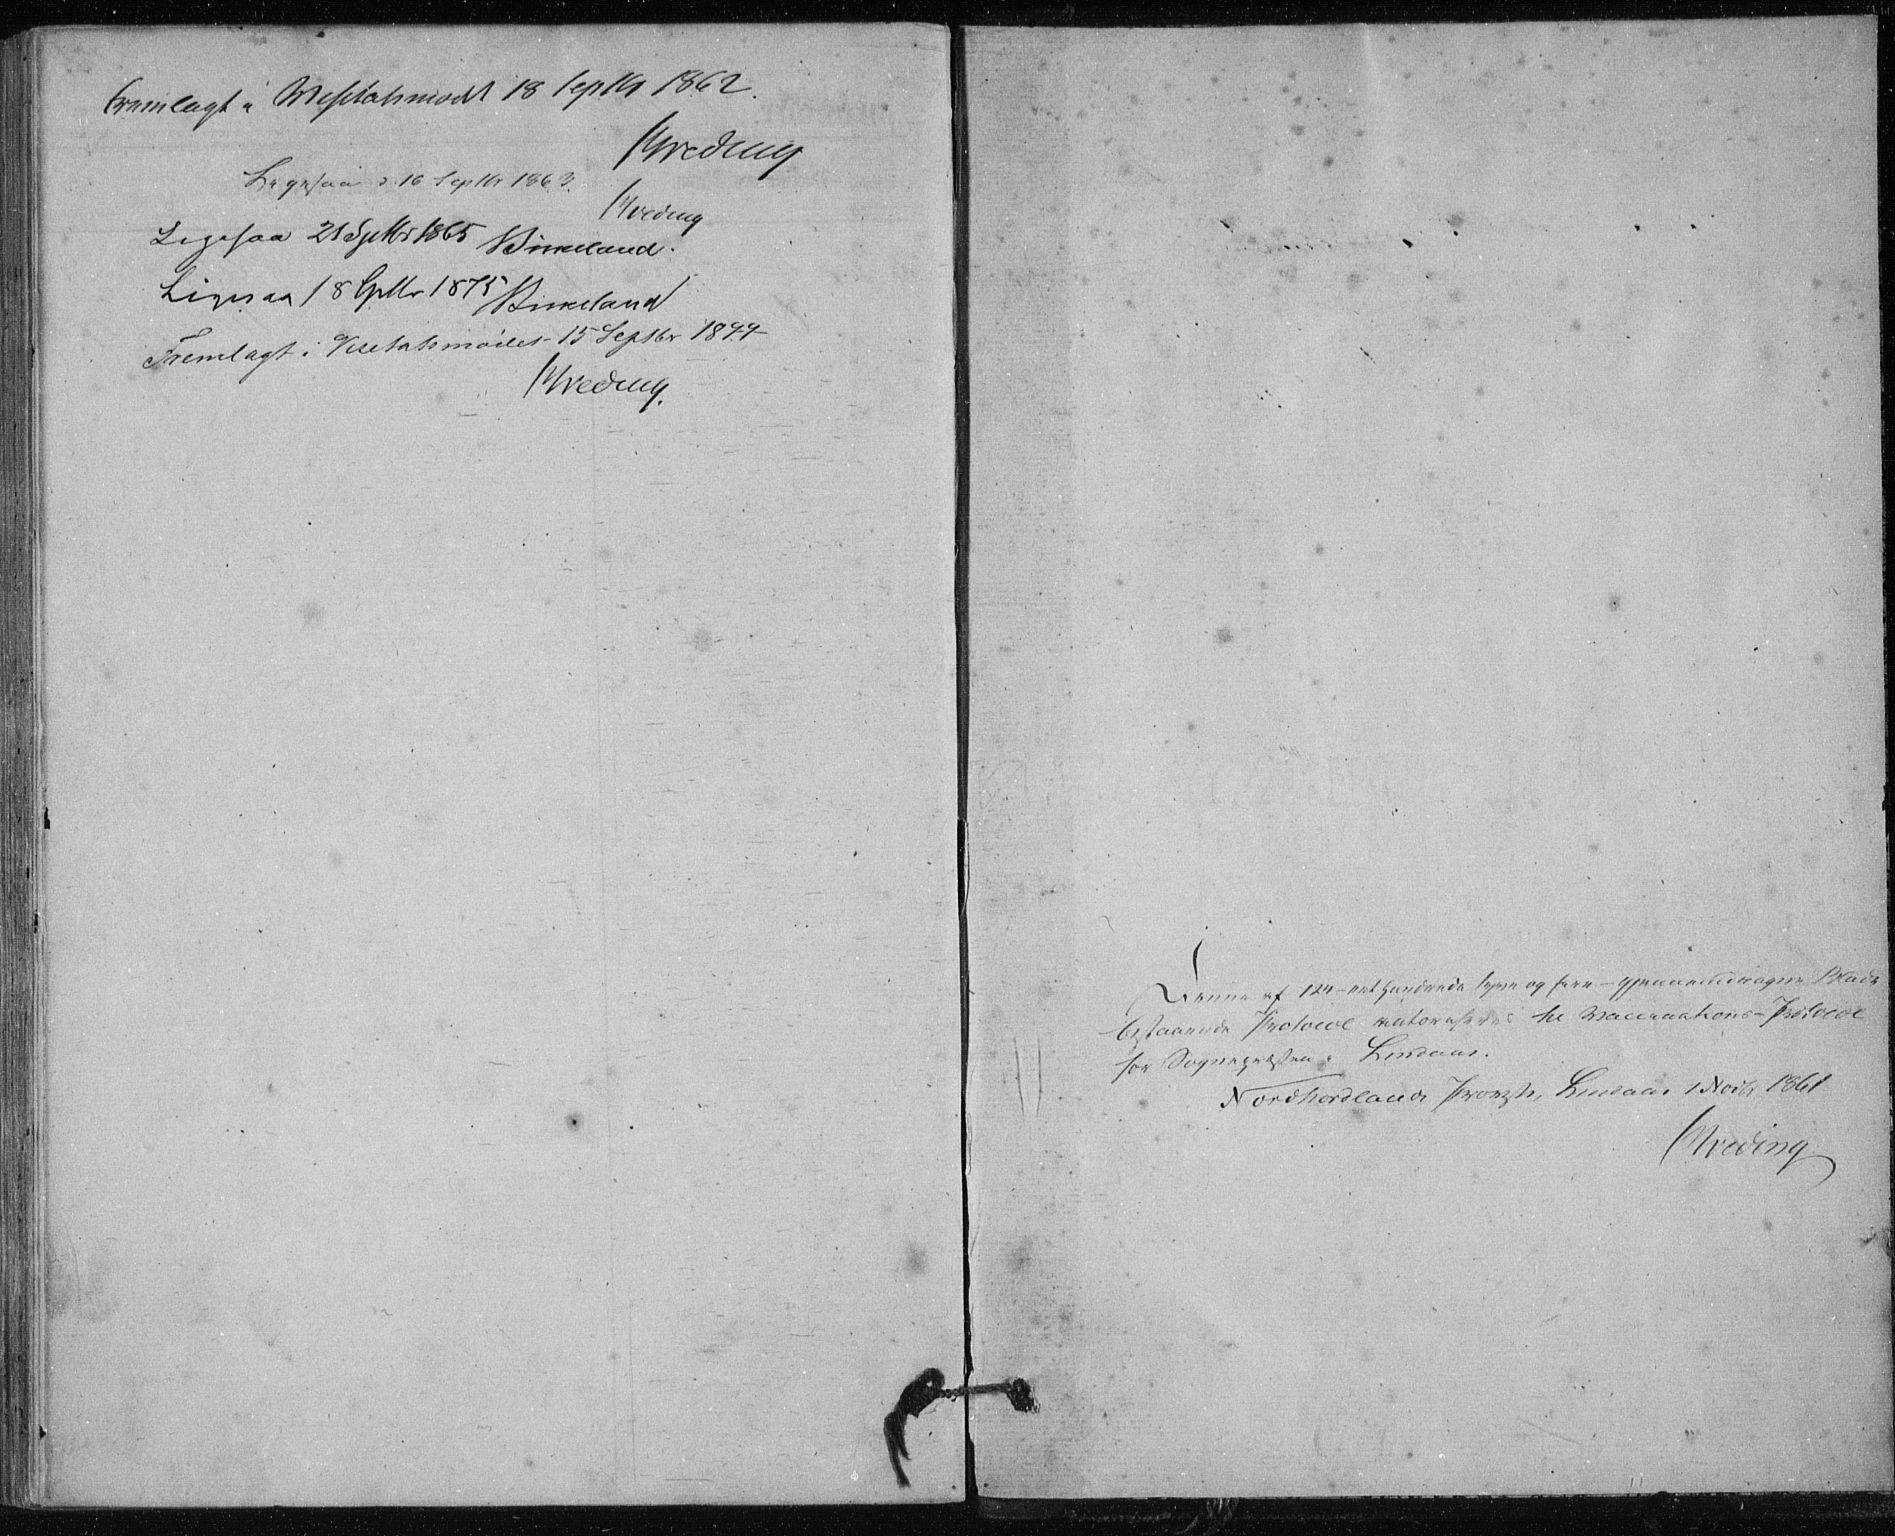 Fremlagt i Visitatsmødet 18 Septbr 1862.
Kreding
Ligesaa d. 16 Septbr 1863.
Kreding
Ligesaa 21 Septbr 1865 Birkeland.
Ligesaa 18 Septbr 1875 Birkeland
Fremlagt i Visitatsmødet 15 Septbr
Kreding.
Denne af 124 – eet Hundrede tyve og fire – gjennemdragne Blade
bestaaende Protocol autoriseres til Vaccinations-Protocol
for Sognepræsten i Lindaas.
Nordhordlands Provsti, Lindaas 1 Novbr 1861
Kreding